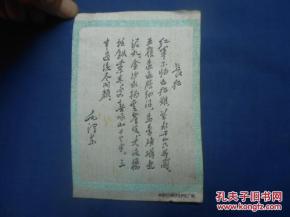 长征
红军不怕远征难，万水千山只等闲。
五岭逶迤腾细浪，乌蒙磅礴走
泥丸。金沙水拍云崖暖，大渡桥
横铁索寒。更喜岷山千里雪，三
军过后尽开颜。
毛泽东